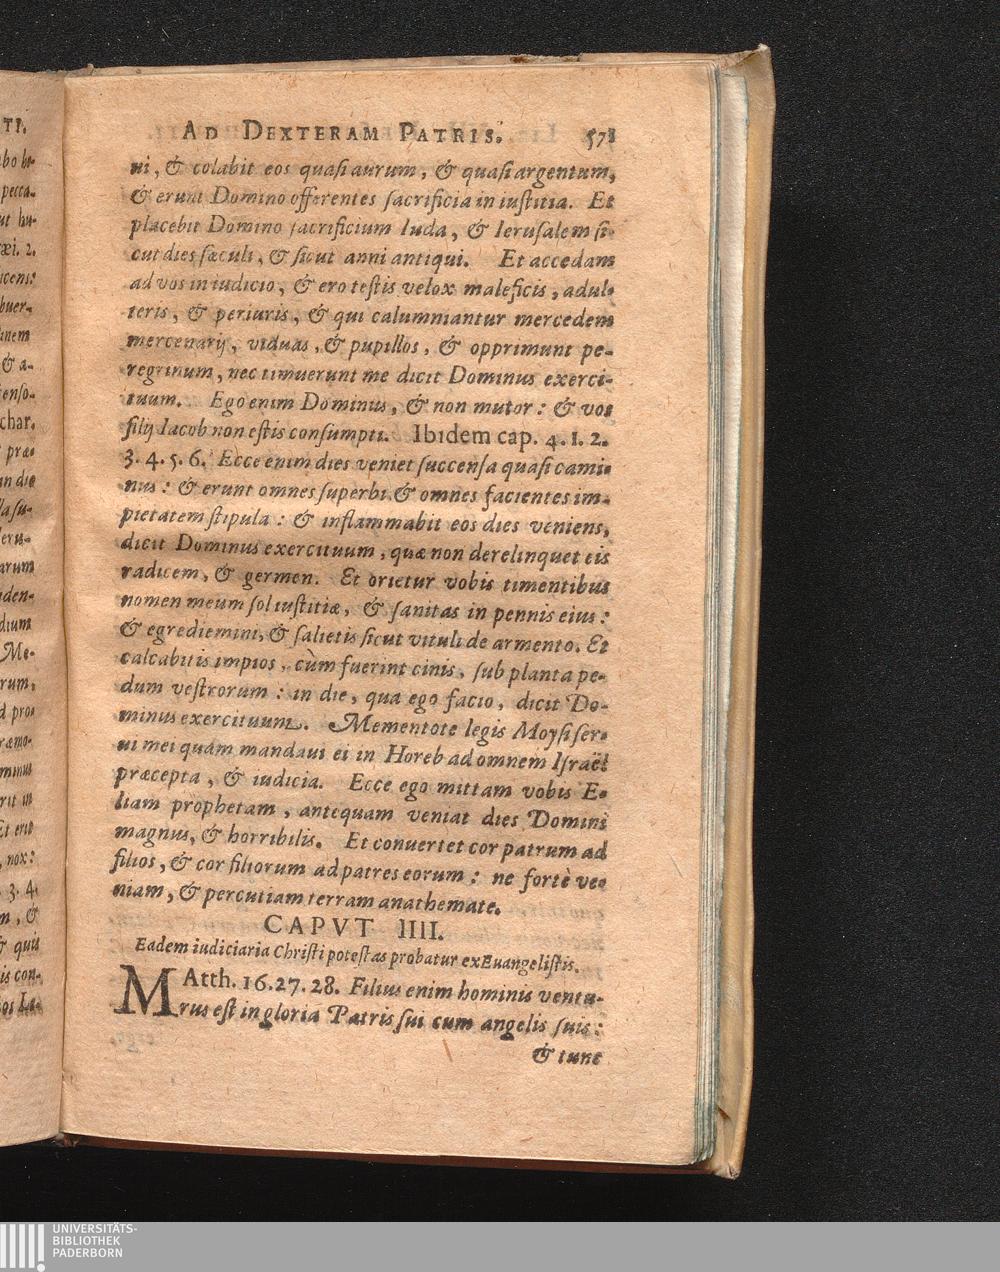 AD DEXTERAM PATRIS. 571
ni, & colabit eos quasi aurum, & quasi argentum,
& erunt Domino offerentes sacrificia in iustitia. Et
placebit Domino sacrificium Iuda, & Ierusalem si-
cut dies sæculi, & sicut anni antiqui. Et accedam
ad vos in iudicio, & ero testis velox maleficis, adul-
teris, & periuris, & qui calumniantur mercedem
mercenarij, viduas, & pupillos, & opprimunt pe-
regrinum, nec timuerunt me dicit Dominus exerci-
tuum. Ego enim Dominus, & non mutor: & vos
filij Iacob non estis consumpti. Ibidem cap. 4. 1. 2.
3. 4. 5. 6. Ecce enim dies veniet succensa quasi cami-
nus: & erunt omnes superbi & omnes facientes im-
pietatem stipula: & inflammabit eos dies veniens,
dicit Dominus exercituum, quæ non derelinquet eis
radicem, & germen. Et orietur vobis timentibus
nomen meum sol iustitiæ, & sanitas in pennis eius:
& egrediemini, & salietis sicut vituli de armento. Et
calcabitis impios, cùm fuerint cinis, sub planta pe-
dum vestrorum: in die, qua ego facio, dicit Do-
minus exercituum. Mementote legis Moysi ser-
ui mei quam mandaui ei in Horeb ad omnem Israël
præcepta, & iudicia. Ecce ego mittam vobis E-
liam prophetam, antequam veniat dies Domini
magnus, & horribilis. Et conuertet cor patrum ad
filios, & cor filiorum ad patres eorum: ne fortè ve-
niam, & percutiam terram anathemate.
CAPVT IIII.
Eadem iudiciaria Christi potestas probatur ex Euangelistis.
MAtth. 16. 27. 28. Filius enim hominis ventu-
rus est in gloria Patris sui cum angelis suis:
& tunc
UNIVERSITÄTS-
BIBLIOTHEK
PADERBORN